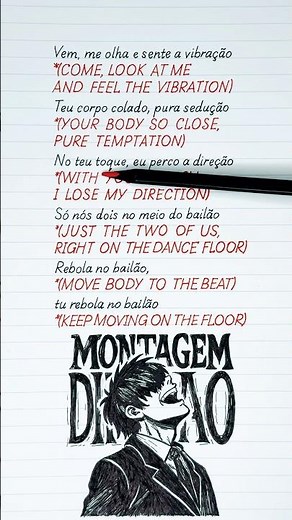 Vem, me olha e sente a vibração
*(COME, LOOK AT ME
AND FEEL THE VIBRATION)
Teu corpo colado, pura sedução
*(YOUR BODY SO CLOSE,
PURE TEMPTATION)
No teu toque, eu perco a direção
*(WITH
I LOSE MY DIRECTION)
Só nós dois no meio do bailão
*(JUST THE TWO OF US,
RIGHT ON THE DANCE FLOOR)
Rebola no bailão,
*(MOVE BODY TO THE BEAT)
tu rebola no bailão
*(KEEP MOVING ON THE FLOOR)
MONTAGEM